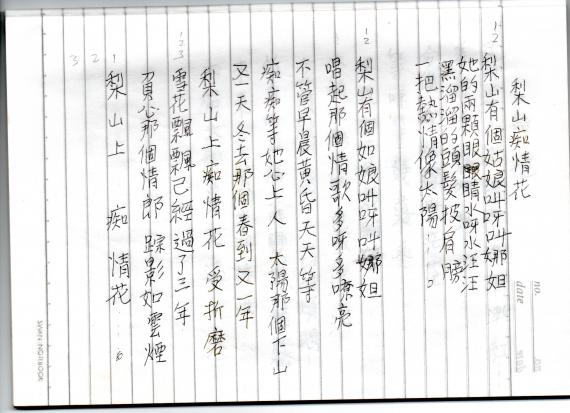 梨山痴情花
1/2 梨山有個姑娘叫呀叫娜妲
她的兩顆眼睛水呀水汪汪
黑溜溜的頭髮披肩膀
一把熱情像太陽……。
1/2 梨山有個姑娘叫呀叫娜妲
唱起那個情歌多呀多嘹亮
不管早晨黃昏天天等
痴痴等她心上人 太陽那個下山
又一天 冬去那個春到又一年
梨山上痴情花 受折磨
1/2/3 雪花飄飄已經過了三年
負心那個情郎 踪影如雲煙
1 梨山上 痴情花……。
2
3
no.
date